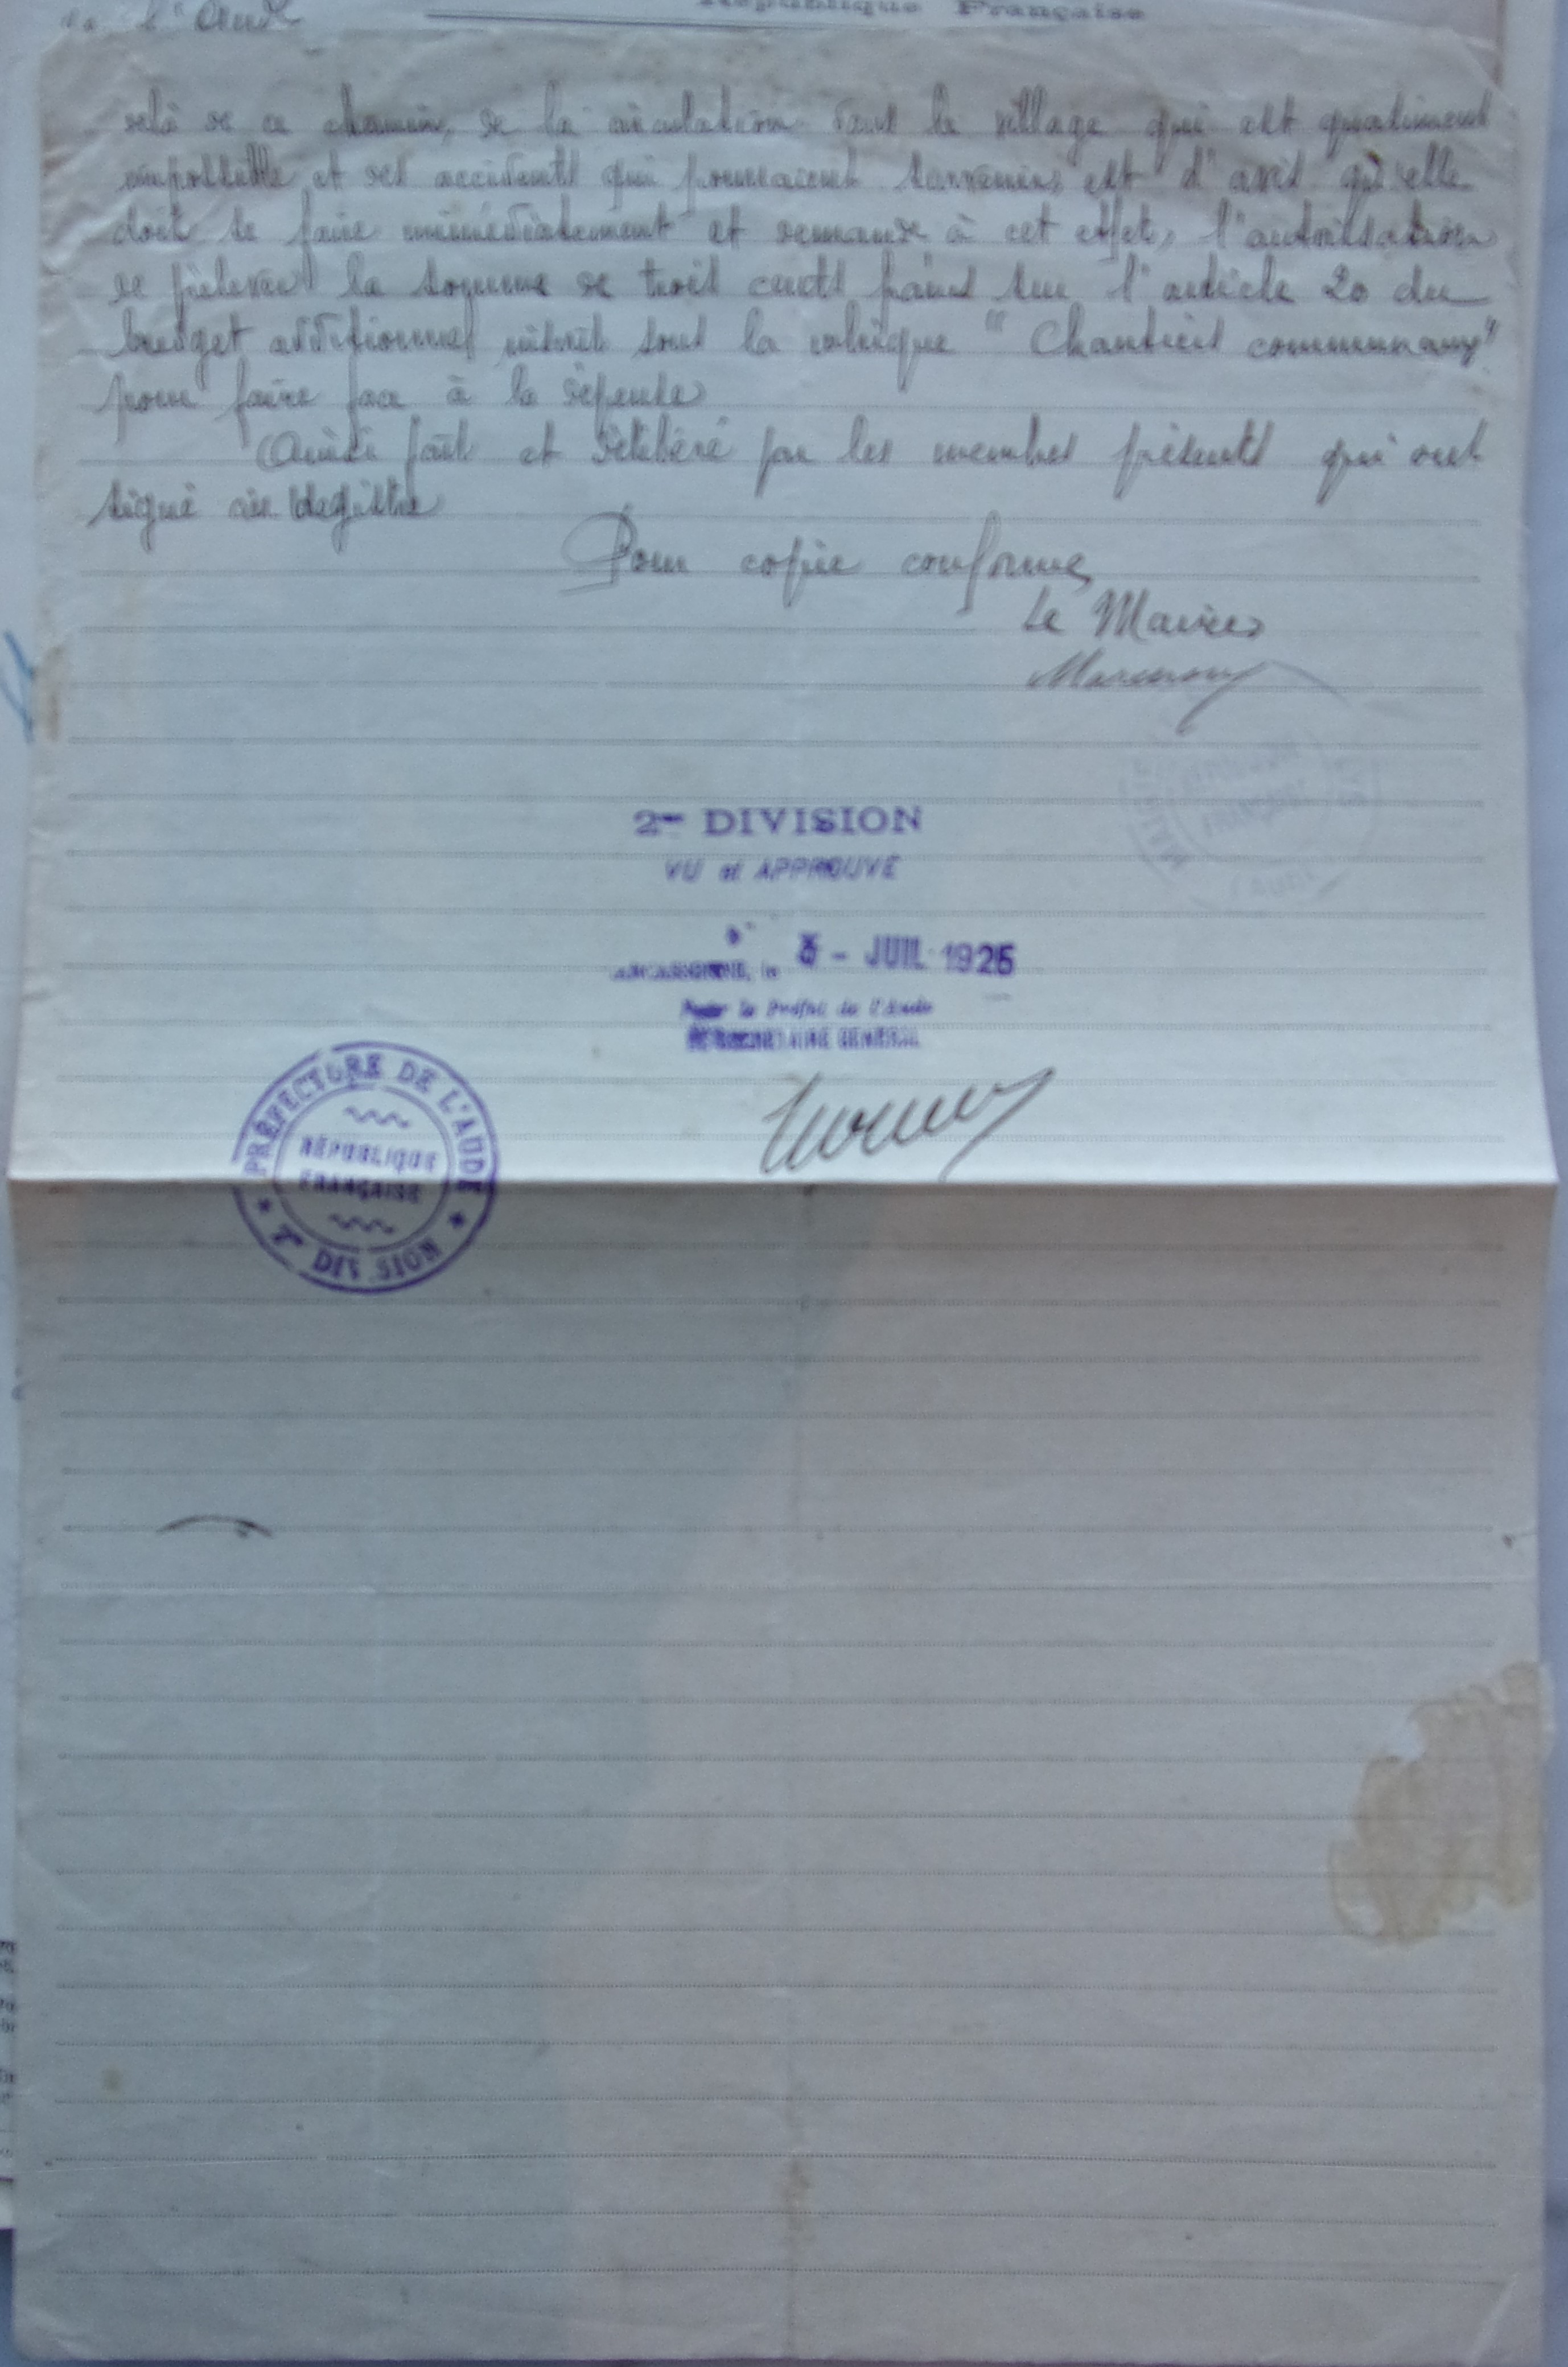 de l'Aude
République Française
delà de ce chemin, de la circulation dans le village qui est quasiment
impossible et des accidents qui pourraient survenir, est d'avis qu'elle
doit se faire immédiatement et demande à cet effet, l'autorisation
de prélever la somme de trois cents francs sur l'article 20 du
budget additionnel inscrit sous la rubrique "Chantiers communaux"
pour faire face à la dépense
Ainsi fait et délibéré par les membres présents qui ont
signé au registre
Pour copie conforme
Le Maire
2me DIVISION
VU et APPROUVÉ
CARCASSONNE, le JUIL 1926
Pour le Préfet de l'Aude
SECRÉTAIRE GÉNÉRAL
PRÉFECTURE DE L'AUDE
RÉPUBLIQUE
FRANÇAISE
* 2e DIVISION *